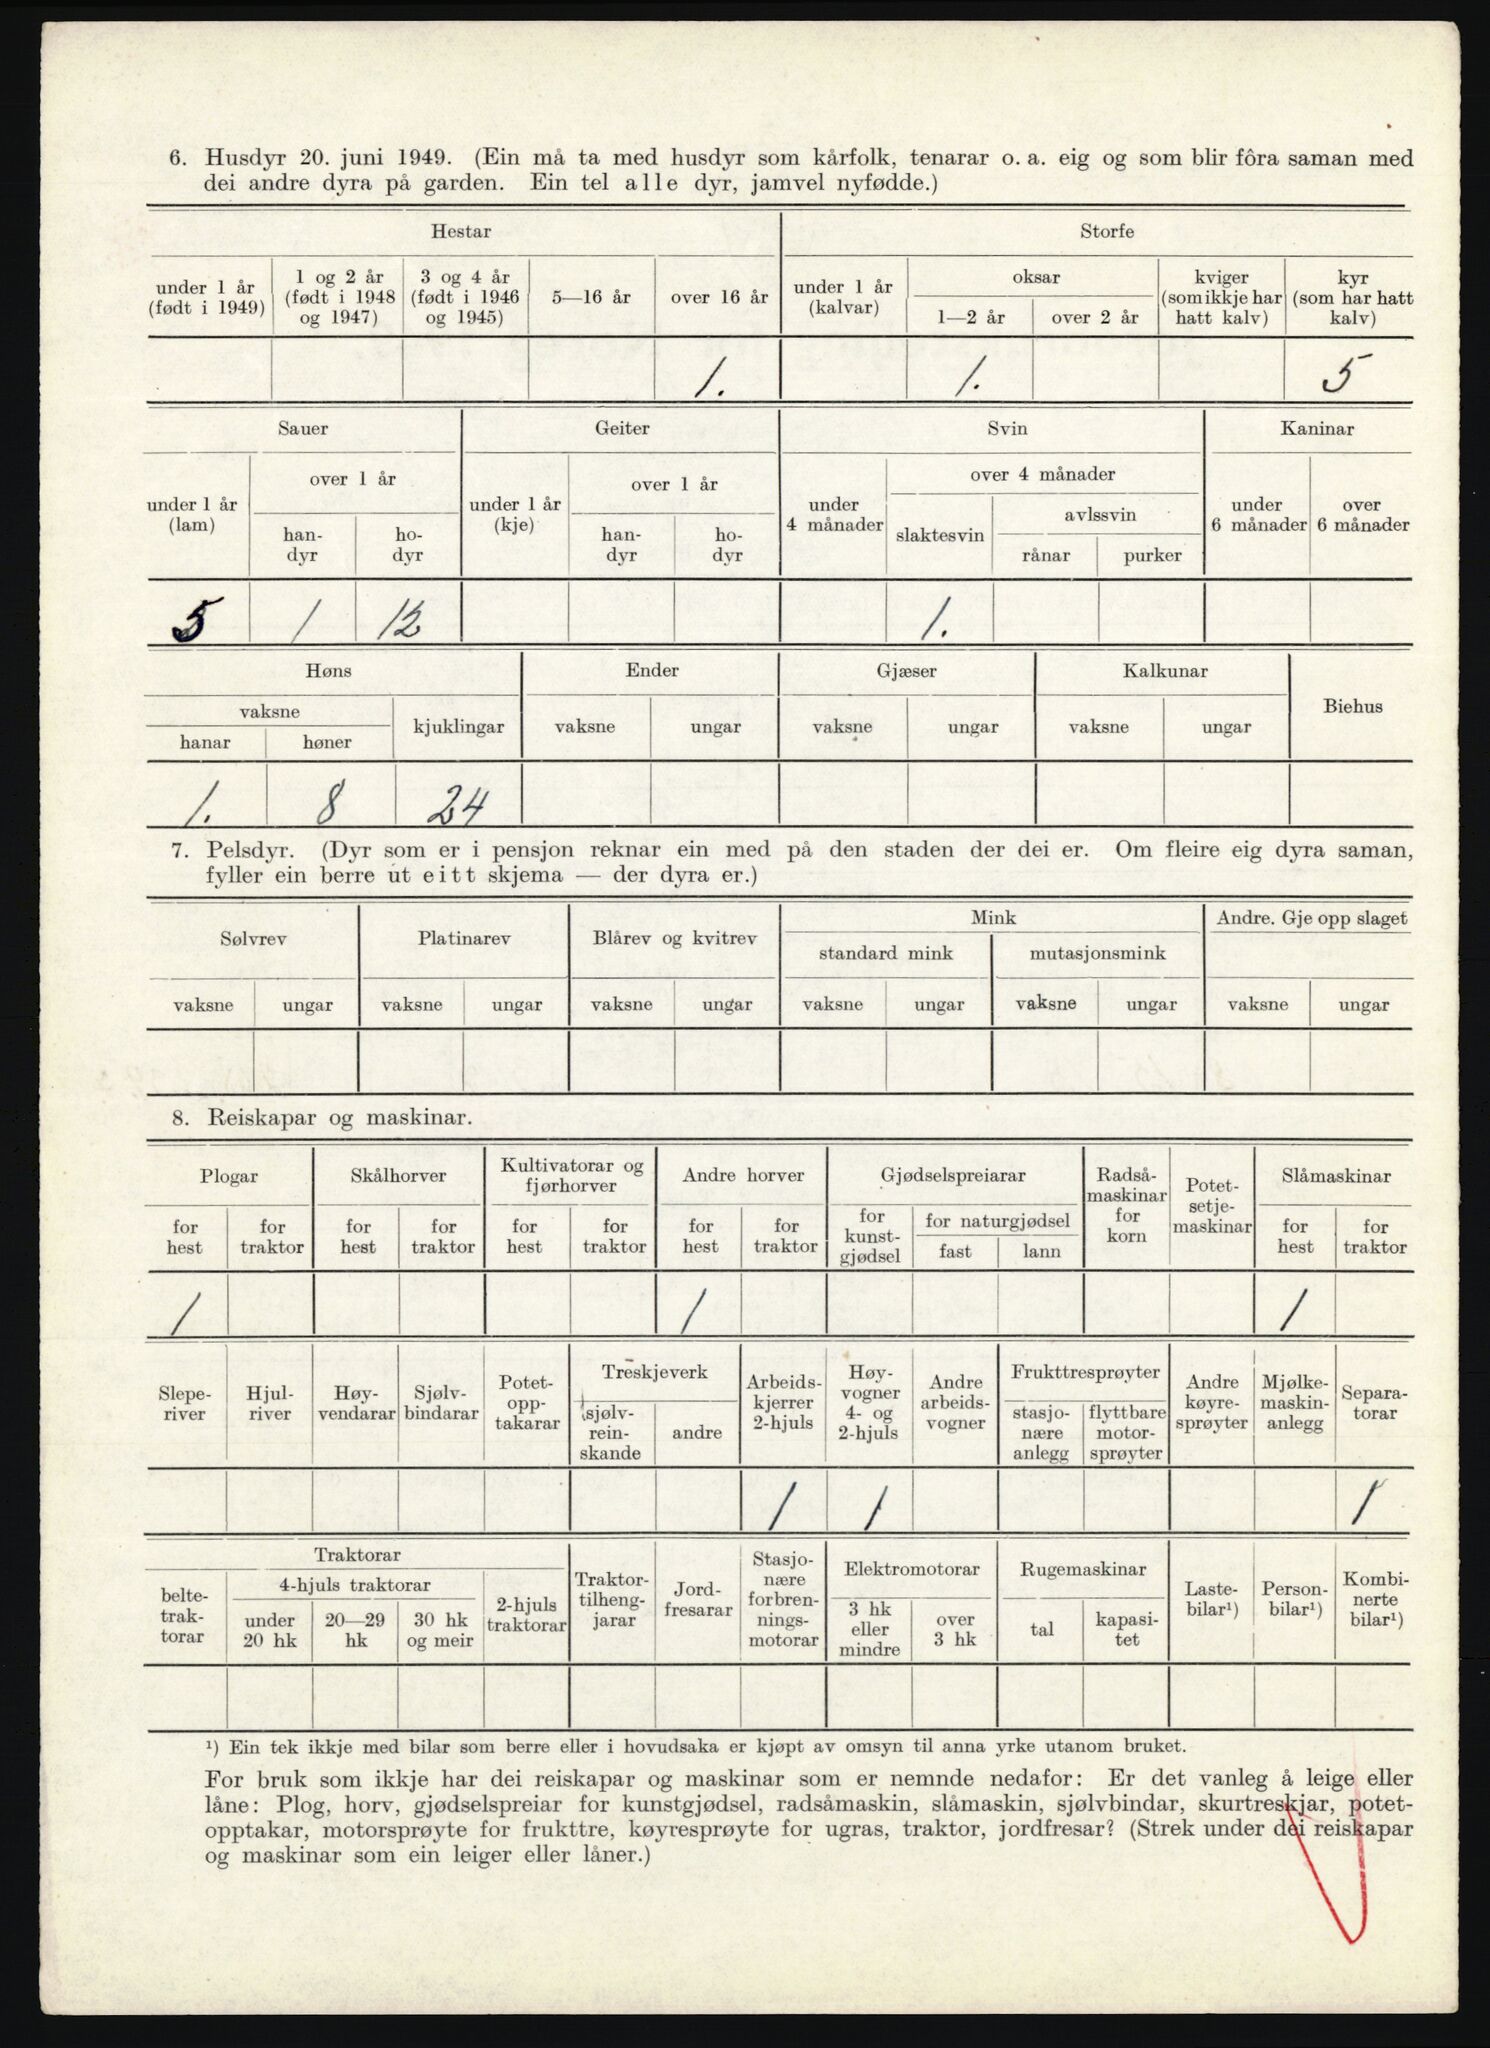 6. Husdyr 20. juni 1949. (Ein må ta med husdyr som kårfolk, tenarar o. a. eig og som blir fôra saman med
dei andre dyra på garden. Ein tel alle dyr, jamvel nyfødde.)
Hestar Storfe
under 1 år (født i 1949) 1 og 2 år (født i 1948 og 1947) 3 og 4 år (født i 1946 og 1945) 5—16 år over 16 år under 1 år (kalvar) oksar 1—2 år over 2 år kviger (som ikkje har hatt kalv) kyr (som har hatt kalv)
1. 1. 5
Sauer Geiter Svin Kaninar
under 1 år (lam) over 1 år han-dyr ho-dyr under 1 år (kje) over 1 år han-dyr ho-dyr under 4 månader over 4 månader slaktesvin avlssvin rånar purker under 6 månader over 6 månader
5 1 12 1.
Høns Ender Gjæser Kalkunar Biehus
vaksne hanar høner kjuklingar vaksne ungar vaksne ungar vaksne ungar
1. 8 24
7. Pelsdyr. (Dyr som er i pensjon reknar ein med på den staden der dei er. Om fleire eig dyra saman,
fyller ein berre ut eitt skjema — der dyra er.)
Sølvrev Platinarev Blårev og kvitrev Mink standard mink mutasjonsmink Andre. Gje opp slaget
vaksne ungar vaksne ungar vaksne ungar vaksne ungar vaksne ungar vaksne ungar
8. Reiskapar og maskinar.
Plogar Skålhorver Kultivatorar og fjørhorver Andre horver Gjødselspreiarar Radså-maskinar for korn Potet-setje-maskinar Slåmaskinar
for hest for traktor for hest for traktor for hest for traktor for hest for traktor for kunst-gjødsel for naturgjødsel fast lann for hest for traktor
1 1 1
Slepe-river Hjul-river Høy-vendarar Sjølv-bindarar Potet-opp-takarar Treskjeverk sjølv-rein-skande andre Arbeids-kjerrer 2-hjuls Høy-vogner 4- og 2-hjuls Andre arbeids-vogner Frukttresprøyter stasjo-nære anlegg flyttbare motor-sprøyter Andre køyre-sprøyter Mjølke-maskin-anlegg Separa-torar
1 1 1
Traktorar belte-trak-torar 4-hjuls traktorar under 20 hk 20—29 hk 30 hk og meir 2-hjuls traktorar Traktor-tilheng-jarar Jord-fresarar Stasjo-nære forbren-nings-motorar Elektromotorar 3 hk eller mindre over 3 hk Rugemaskinar tal kapasi-tet Laste-bilar¹) Person-bilar¹) Kombi-nerte bilar¹)
¹) Ein tek ikkje med bilar som berre eller i hovudsaka er kjøpt av omsyn til anna yrke utanom bruket.
For bruk som ikkje har dei reiskapar og maskinar som er nemnde nedafor: Er det vanleg å leige eller
låne: Plog, horv, gjødselspreiar for kunstgjødsel, radsåmaskin, slåmaskin, sjølvbindar, skurtreskjar, potet-
opptakar, motorsprøyte for frukttre, køyresprøyte for ugras, traktor, jordfresar? (Strek under dei reiskapar
og maskinar som ein leiger eller låner.)